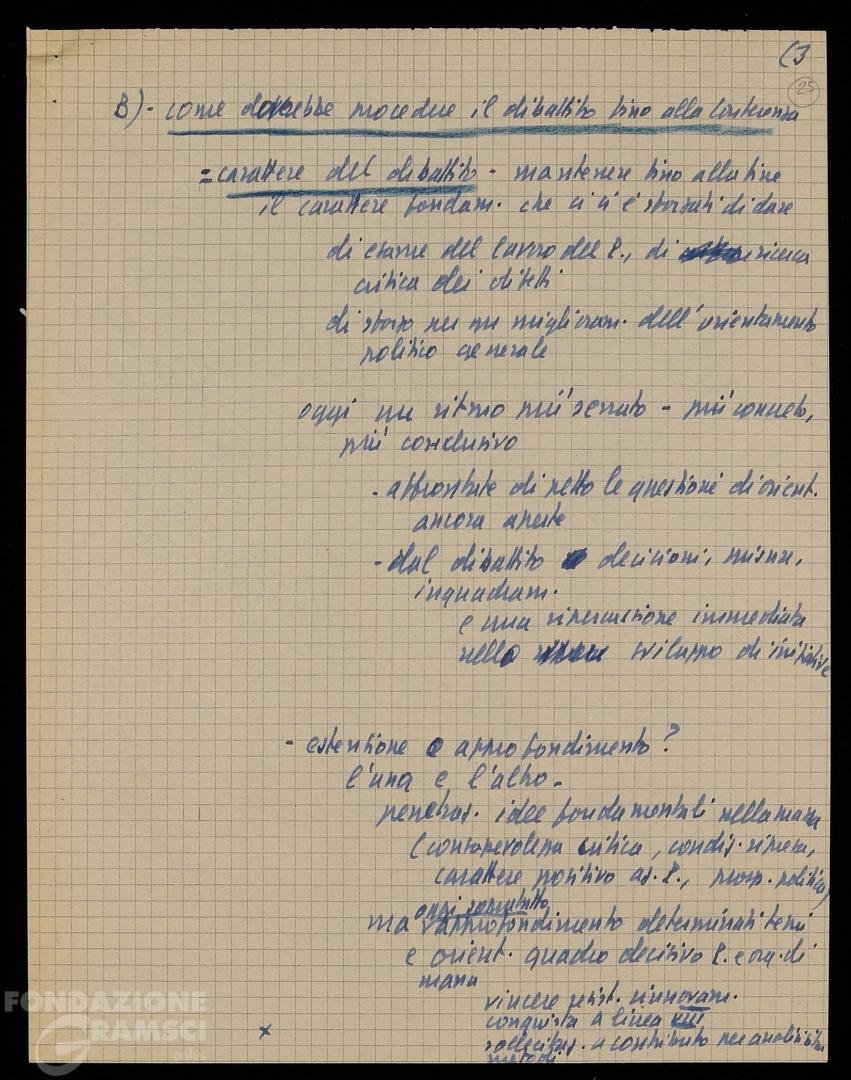 (3
25
B) - come dovrebbe procedere il dibattito fino alla Conferenza
= carattere del dibattito - mantenere fino alla fine
il carattere fondam. che ci si è sforzati di dare
di esame del lavoro del P., di ricerca
critica dei difetti
di sforzo per un miglioram. dell'orientamento
politico generale
oggi un ritmo più serrato - più concreto,
più conclusivo
- affrontate di petto le questioni di orient.
ancora aperte
- dal dibattito decisioni, misure,
inquadram.
e una ripercussione immediata
nello sviluppo di iniziative
- estensione o approfondimento?
l'una e l'altro -
penetraz. idee fondamentali nella massa
(consapevolezza critica, condiz. ripresa,
carattere positivo az. P., prosp. politica)
oggi soprattutto
ma approfondimento determinati temi
e orient. quadro decisivo P. e org. di
massa
vincere resist. rinnovam.
conquista a linea VIII
sollecitaz. a contributo per analisi
metodi
x
FONDAZIONE
GRAMSCI
onlus